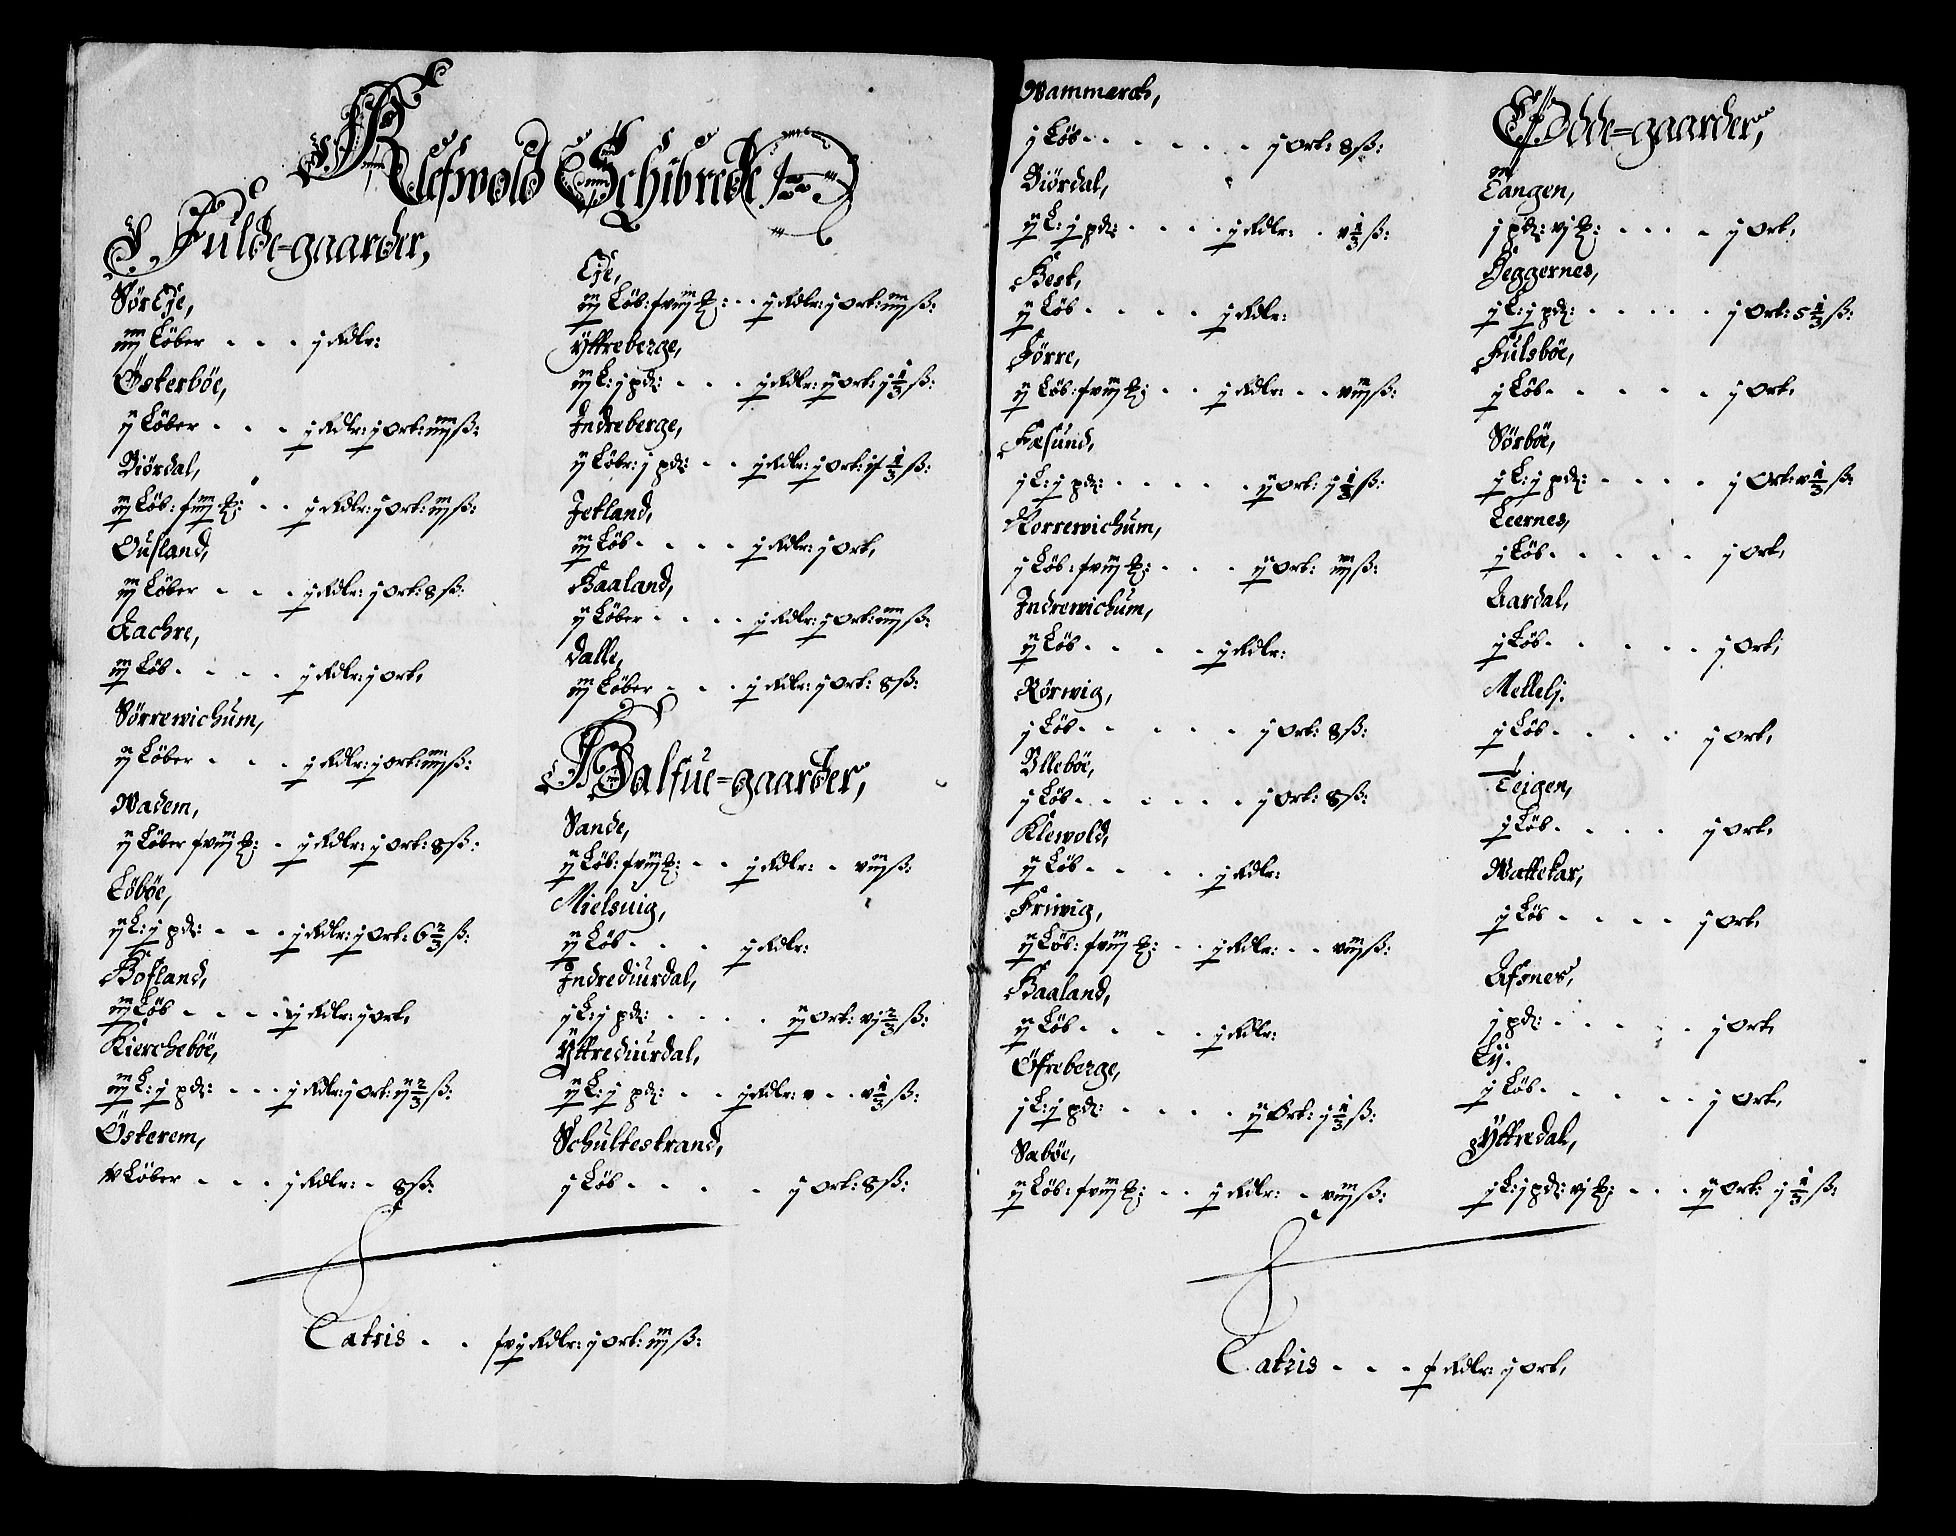 Klefwold Schibrede
Fulde-gaarder,
Sör Eje,
iiij Löber - - - j Rdlr:
Österböe,
ij Löber - - - j Rdlr: j ort: iiij ß:
Diördal,
iij Löb: - - j Rdlr: j ort: iiij ß:
Oufland,
iij Löber - - - j Rdlr: j ort: 8 ß:
Aachre,
iij Löb - - - - j Rdlr: j ort,
Sörrewichum,
ij Löber - - - j Rdlr: j ort: iiij ß:
Wadem,
ij Löber xviij - j Rdlr: j ort: 8 ß:
Löböe,
ij L: j pd: - - - j Rdlr: j ort: 6 2/3 ß:
Hofland,
iij Löb - - - - j Rdlr: j ort,
Kiercheböe,
iij L: j pd: - - - j Rdlr: j ort: ij 2/3 ß:
Österem,
v Löber - - - j Rdlr: - 8 ß:
Eje,
iij Löb: xviij - - j Rdlr: j ort: iiij ß:
Yttreberge,
iij L: j pd: - - - j Rdlr: ij ort: j 1/3 ß:
Indreberge,
ij Löbr: j pd: - - j Rdlr: j ort: 1/3 ß:
Jetland,
iij Löb - - - - j Rdlr: j ort,
Haaland,
ij Löber - - - - j Rdlr: j ort: iiij ß:
Dalle,
iij Löber - - - j Rdlr: j ort: 8 ß:
Halfue-gaarder,
Sande,
ij Löb: xviij - - j Rdlr: - viij ß:
Mielsuig,
ij Löb - - - j Rdlr:
Indrediurdal,
j L: j pd: - - - - ij ort: vj 2/3 ß:
Yttrediurdal,
ij L: j pd: - - j Rdlr: - - v 1/3 ß:
Schultestrand,
j Löb - - - - j ort: 8 ß:
Latris - - xvj Rdlr: j ort: iiij ß:
Wammerch,
j Löb - - - - - - j ort: 8 ß:
Diördal,
ij L: j pd: - - - - j Rdlr: - v 1/3 ß:
Hest,
ij Löb - - - - j Rdlr:
Förre,
ij Löb: xviij - - j Rdlr: - - viij ß:
Fæsund,
j L: j pd: - - - - - ij ort: j 1/3 ß:
Norrewichum,
j Löb: xviij - - - ij ort: iiij ß:
Indrewichum,
ij Löb - - - - j Rdlr:
Rörwig,
j Löb - - - - - j ort: 8 ß:
Ulleböe,
j Löb - - - - - - j ort: 8 ß:
Klewold,
ij Löb - - - - j Rdlr:
Friwig,
ij Löb: xviij - - j Rdlr: - - viij ß:
Haaland,
ij Löb - - - - j Rdlr:
Öfreberge,
j L: j pd: - - - - - ij Ort: j 1/3 ß:
Saböe,
ij Löb: xviij - - j Rdlr: - viij ß:
Ödde-gaarder,
Tangen,
j pd: vj - - - - j ort,
Heggernes,
j L: j pd: - - - - - j ort: 5 1/3 ß:
Fulsböe,
j Löb - - - - - j ort,
Sörböe,
j L: j pd: - - - - j ort: v 1/3 ß:
Leernes,
j Löb - - - - - j ort,
Aardal,
j Löb - - - - - j ort,
Mellelj.
j Löb - - - - j ort,
Teigen,
j Löb - - - - j ort,
Wattekar,
j Löb - - - - j ort,
Afsnes,
j pd: - - - - - j ort,
Lij.
j Löb - - - - - j ort,
Yttredal,
j L: j pd: vj - - - ij ort: j 1/3 ß:
Latris - - - x Rdlr: j ort,